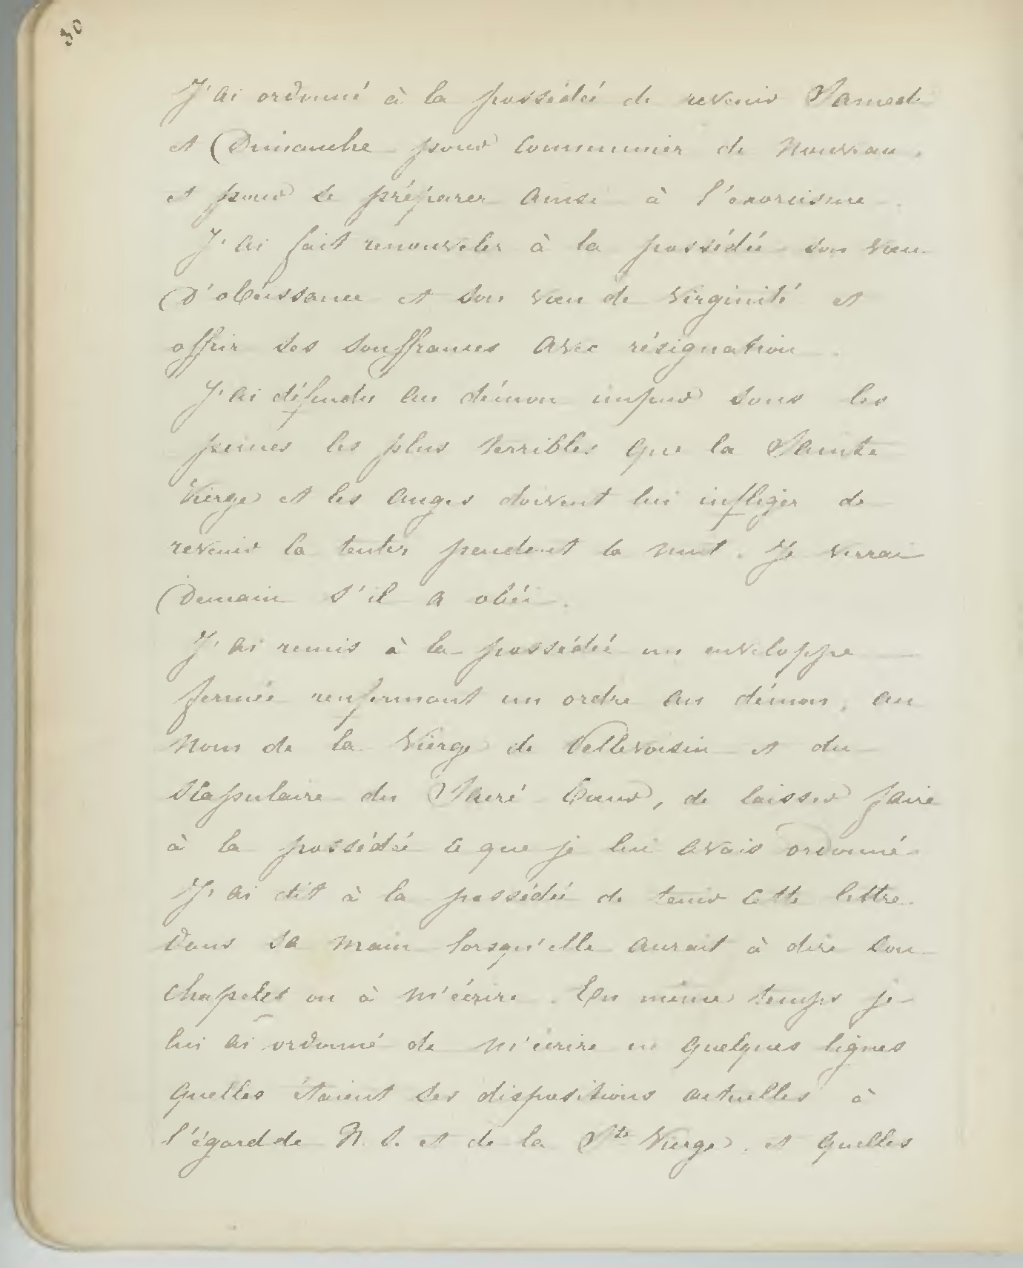 30
J'ai ordonné à la possédée de revenir Samedi
et Dimanche pour communier de nouveau,
et pour se préparer ainsi à l'exorcisme.
J'ai fait renouveler à la possédée son vœu
D'obéissance et son vœu de virginité et
offrir ses souffrances avec résignation.
J'ai défendu au démon impur sous les
peines les plus terribles que la Sainte
Vierge et les anges doivent lui infliger de
revenir la tenter pendant la nuit. Je verrai
Demain s'il a obéi.
J'ai remis à la possédée un enveloppe
fermée renfermant un ordre au démon, au
nom de la Vierge de Pellevoisin et du
Scapulaire du Sacré Cœur, de laisser faire
à la possédée ce que je lui avais ordonné.
J'ai dit à la possédée de tenir cette lettre
Dans sa main lorsqu'elle aurait à dire son
chapelet ou à m'écrire. En même temps je
lui ai ordonné de m'écrire en quelques lignes
quelles étaient ses dispositions actuelles à
l'égard de N. S. et de la Ste Vierge, et quelles